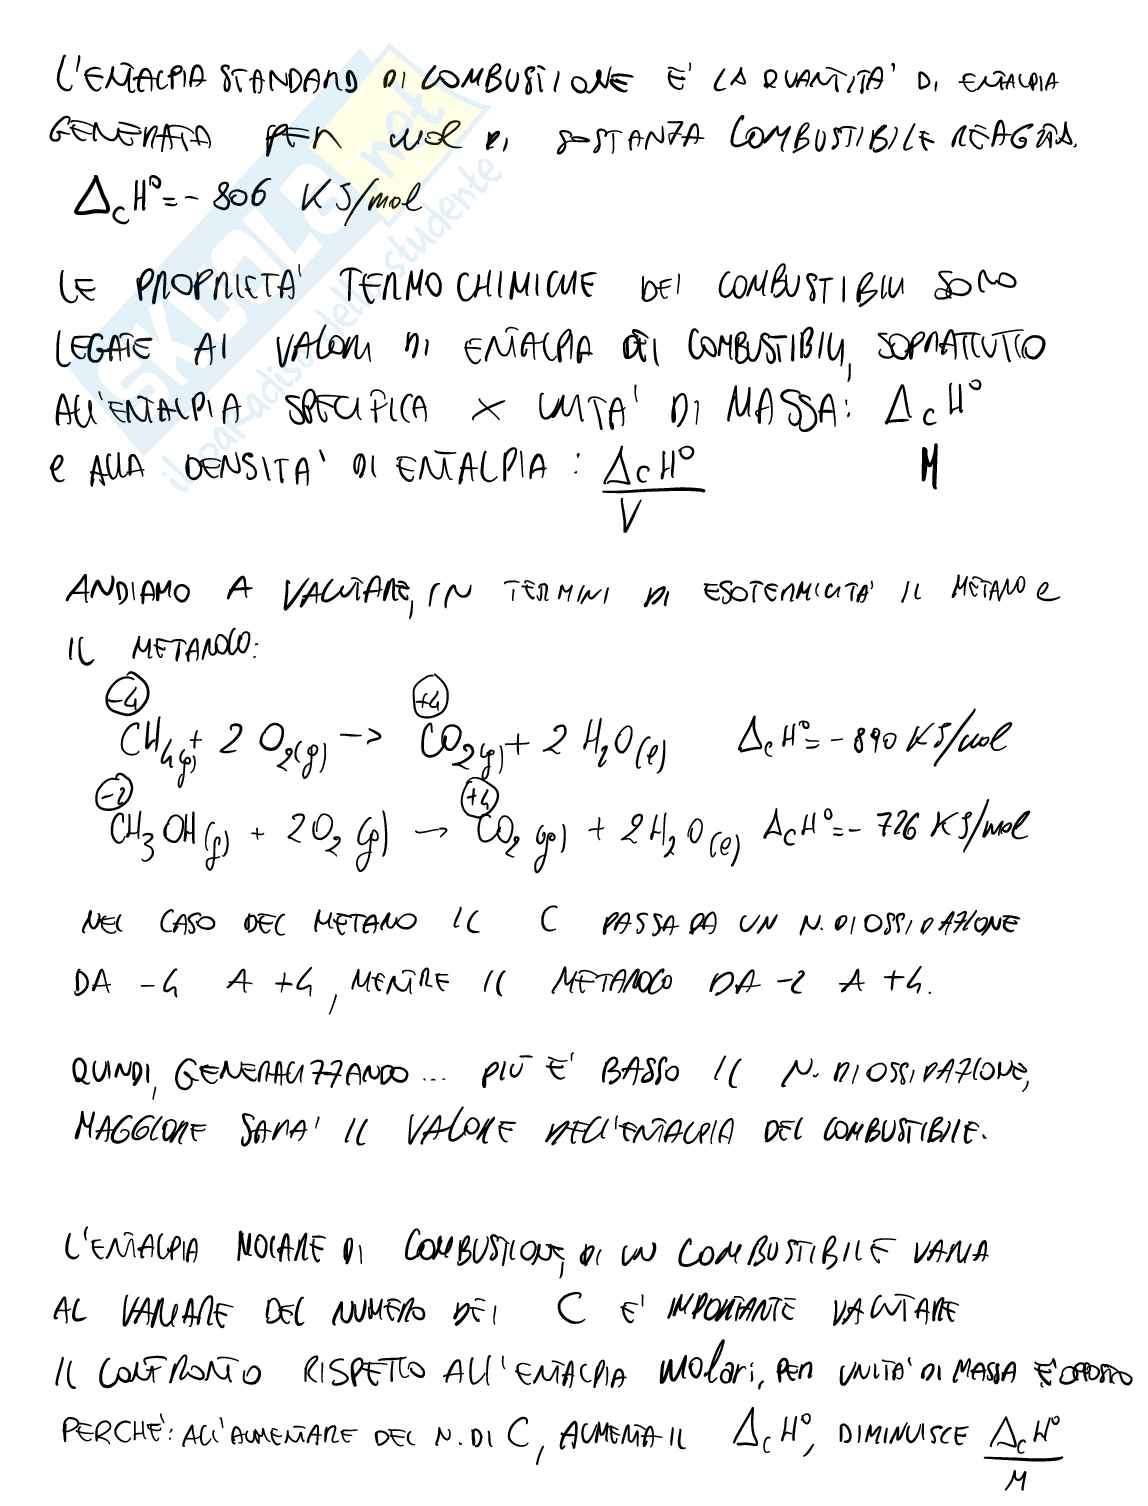 L'ENTALPIA STANDARD DI COMBUSTIONE E' LA QUANTITA' DI ENTALPIA
GENERATA PER mol DI SOSTANZA COMBUSTIBILE REAGITA.
ΔcH°= - 806 KJ/mol
LE PROPRIETA' TERMOCHIMICHE DEI COMBUSTIBILI SONO
LEGATE AI VALORI DI ENTALPIA DEI COMBUSTIBILI, SOPRATTUTTO
ALL'ENTALPIA SPECIFICA X UNITA' DI MASSA: ΔcH°
M
e ALLA DENSITA' DI ENTALPIA : ΔcH°
V
ANDIAMO A VALUTARE, IN TERMINI DI ESOTERMICITA' IL METANO e
IL METANOLO:
-4 +4
CH4(g) + 2 O2(g) -> CO2(g) + 2 H2O(l) ΔcH°= - 890 KJ/mol
-2 +4
CH3OH(g) + 2O2(g) → CO2(g) + 2H2O(l) ΔcH°= - 726 KJ/mol
NEL CASO DEL METANO IL C PASSA DA UN N. DI OSSIDAZIONE
DA -4 A +4, MENTRE IL METANOLO DA -2 A +4.
QUINDI, GENERALIZZANDO... PIÙ E' BASSO IL N. DI OSSIDAZIONE,
MAGGIORE SARA' IL VALORE DELL'ENTALPIA DEL COMBUSTIBILE.
L'ENTALPIA MOLARE DI COMBUSTIONE, DI UN COMBUSTIBILE VARIA
AL VARIARE DEL NUMERO DEI C E' IMPORTANTE VALUTARE
IL CONFRONTO RISPETTO ALL'ENTALPIA molari, PER UNITA' DI MASSA E' OPPOSTO
PERCHE': ALL'AUMENTARE DEL N. DI C, AUMENTA IL ΔcH°, DIMINUISCE ΔcH°
M